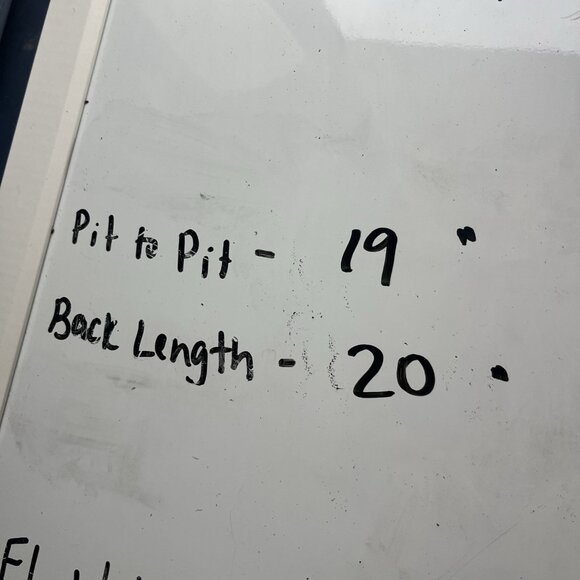 Pit to Pit - 19 "
Back Length - 20 "